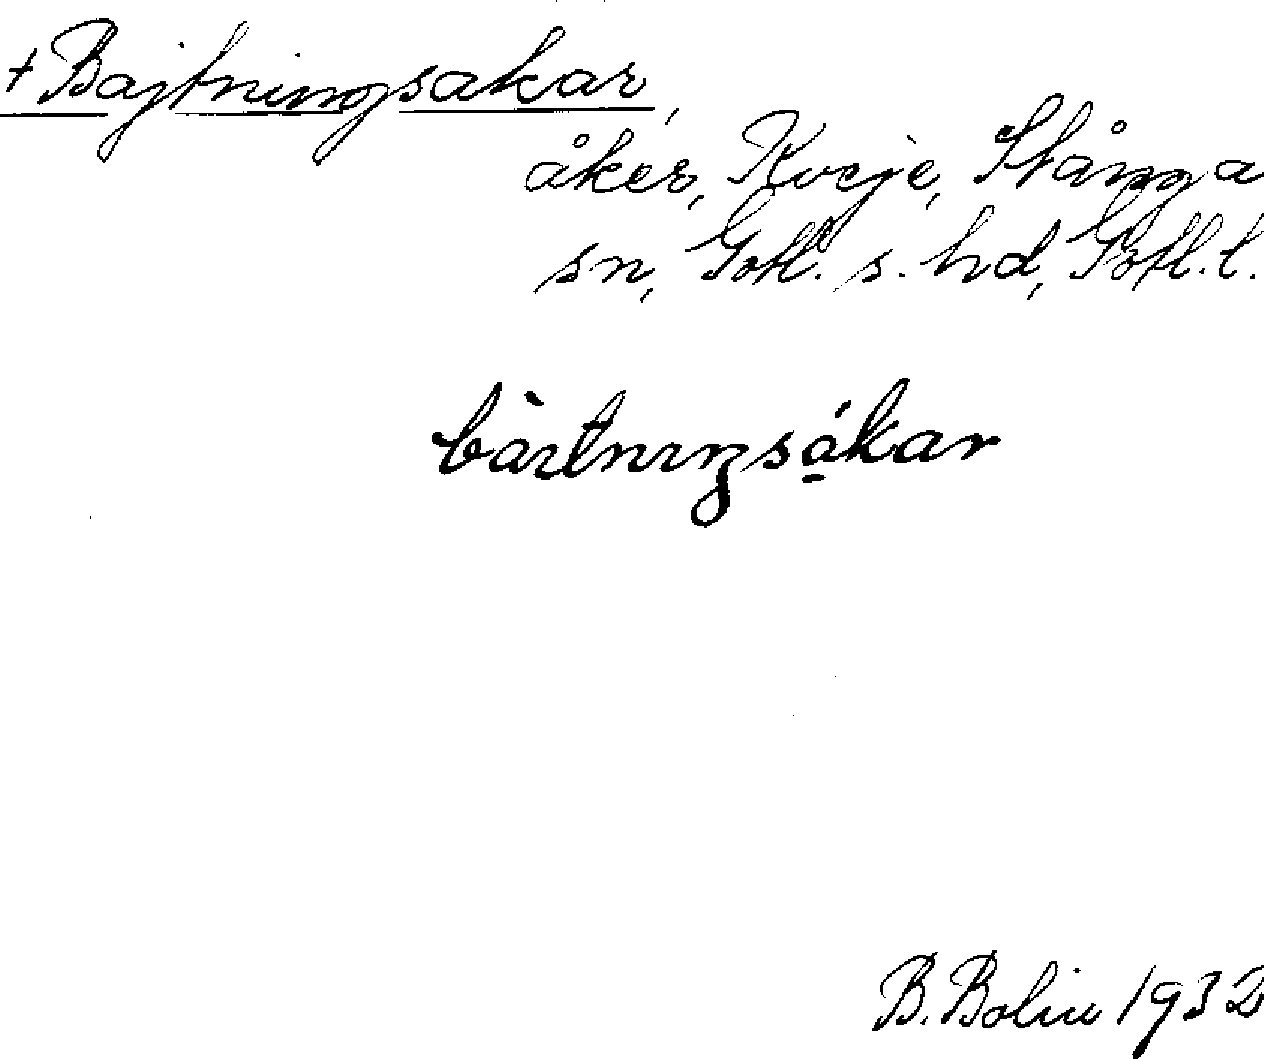 + Bajtningsakar,
åker, Kveje, Stånga
sn, Gotl. s. hd, Gotl. l.
bàıtnıŋsákar
B. Bolin 1932